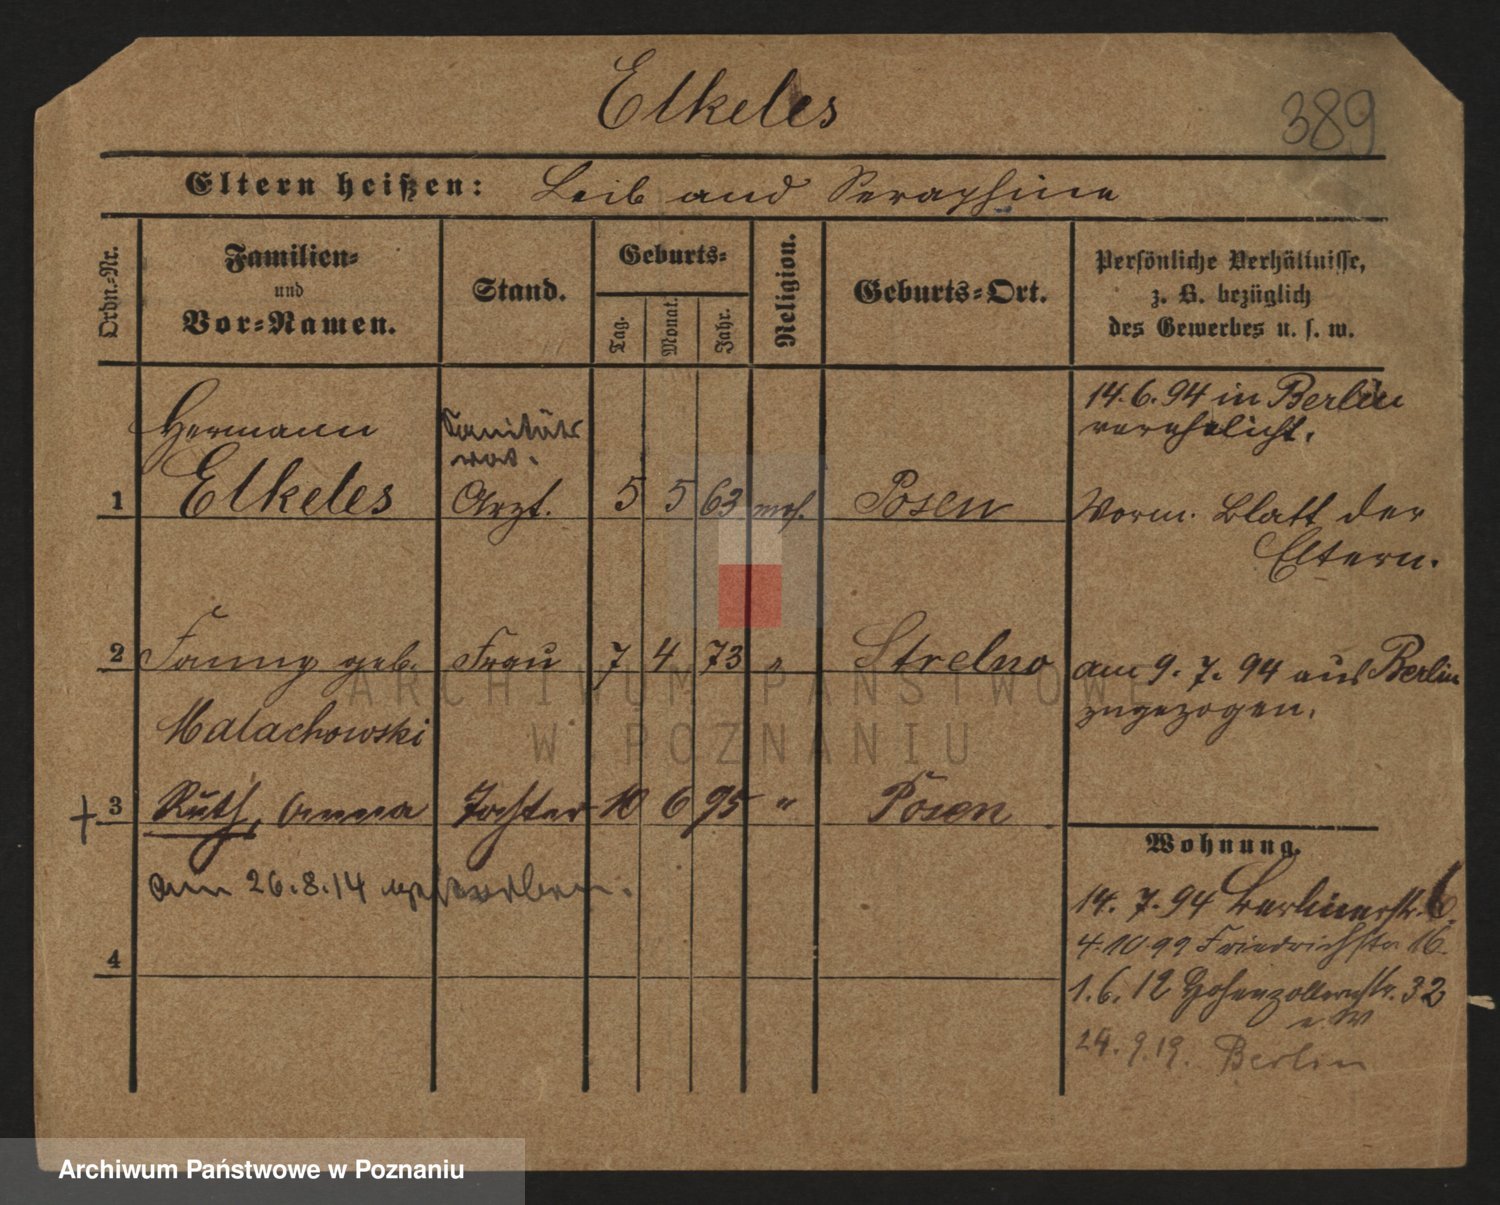 Elkeles
389
Eltern heißen: Leib und Seraphine
Ordn.-Nr.
Familien-
und
Vor-Namen.
Stand.
Geburts-
Tag.
Monat.
Jahr.
Religion.
Geburts-Ort.
Persönliche Verhältnisse,
z. B. bezüglich
des Gewerbes u. s. w.
Hermann
Sanitäts
rat.
14.6.94 in Berlin
verehelicht.
1 Elkeles Arzt. 5 5 63 mos. Posen Vorm. Blatt der
Eltern.
2 Fanny geb. Frau 7 4 73 " Strelno am 9. 7. 94 aus Berlin
Malachowski zugezogen.
ARCHIWUM PAŃSTWOWE
W POZNANIU
+ 3 Ruth, Anna Tochter 10 6 95 " Posen
am 26.8.14 gestorben.
4
Wohnung.
14. 7. 94 Berlinerstr. 6.
4.10.99 Friedrichstr 16.
1.6.12 Hohenzollernstr. 32
24. 9. 19. Berlin
Archiwum Państwowe w Poznaniu